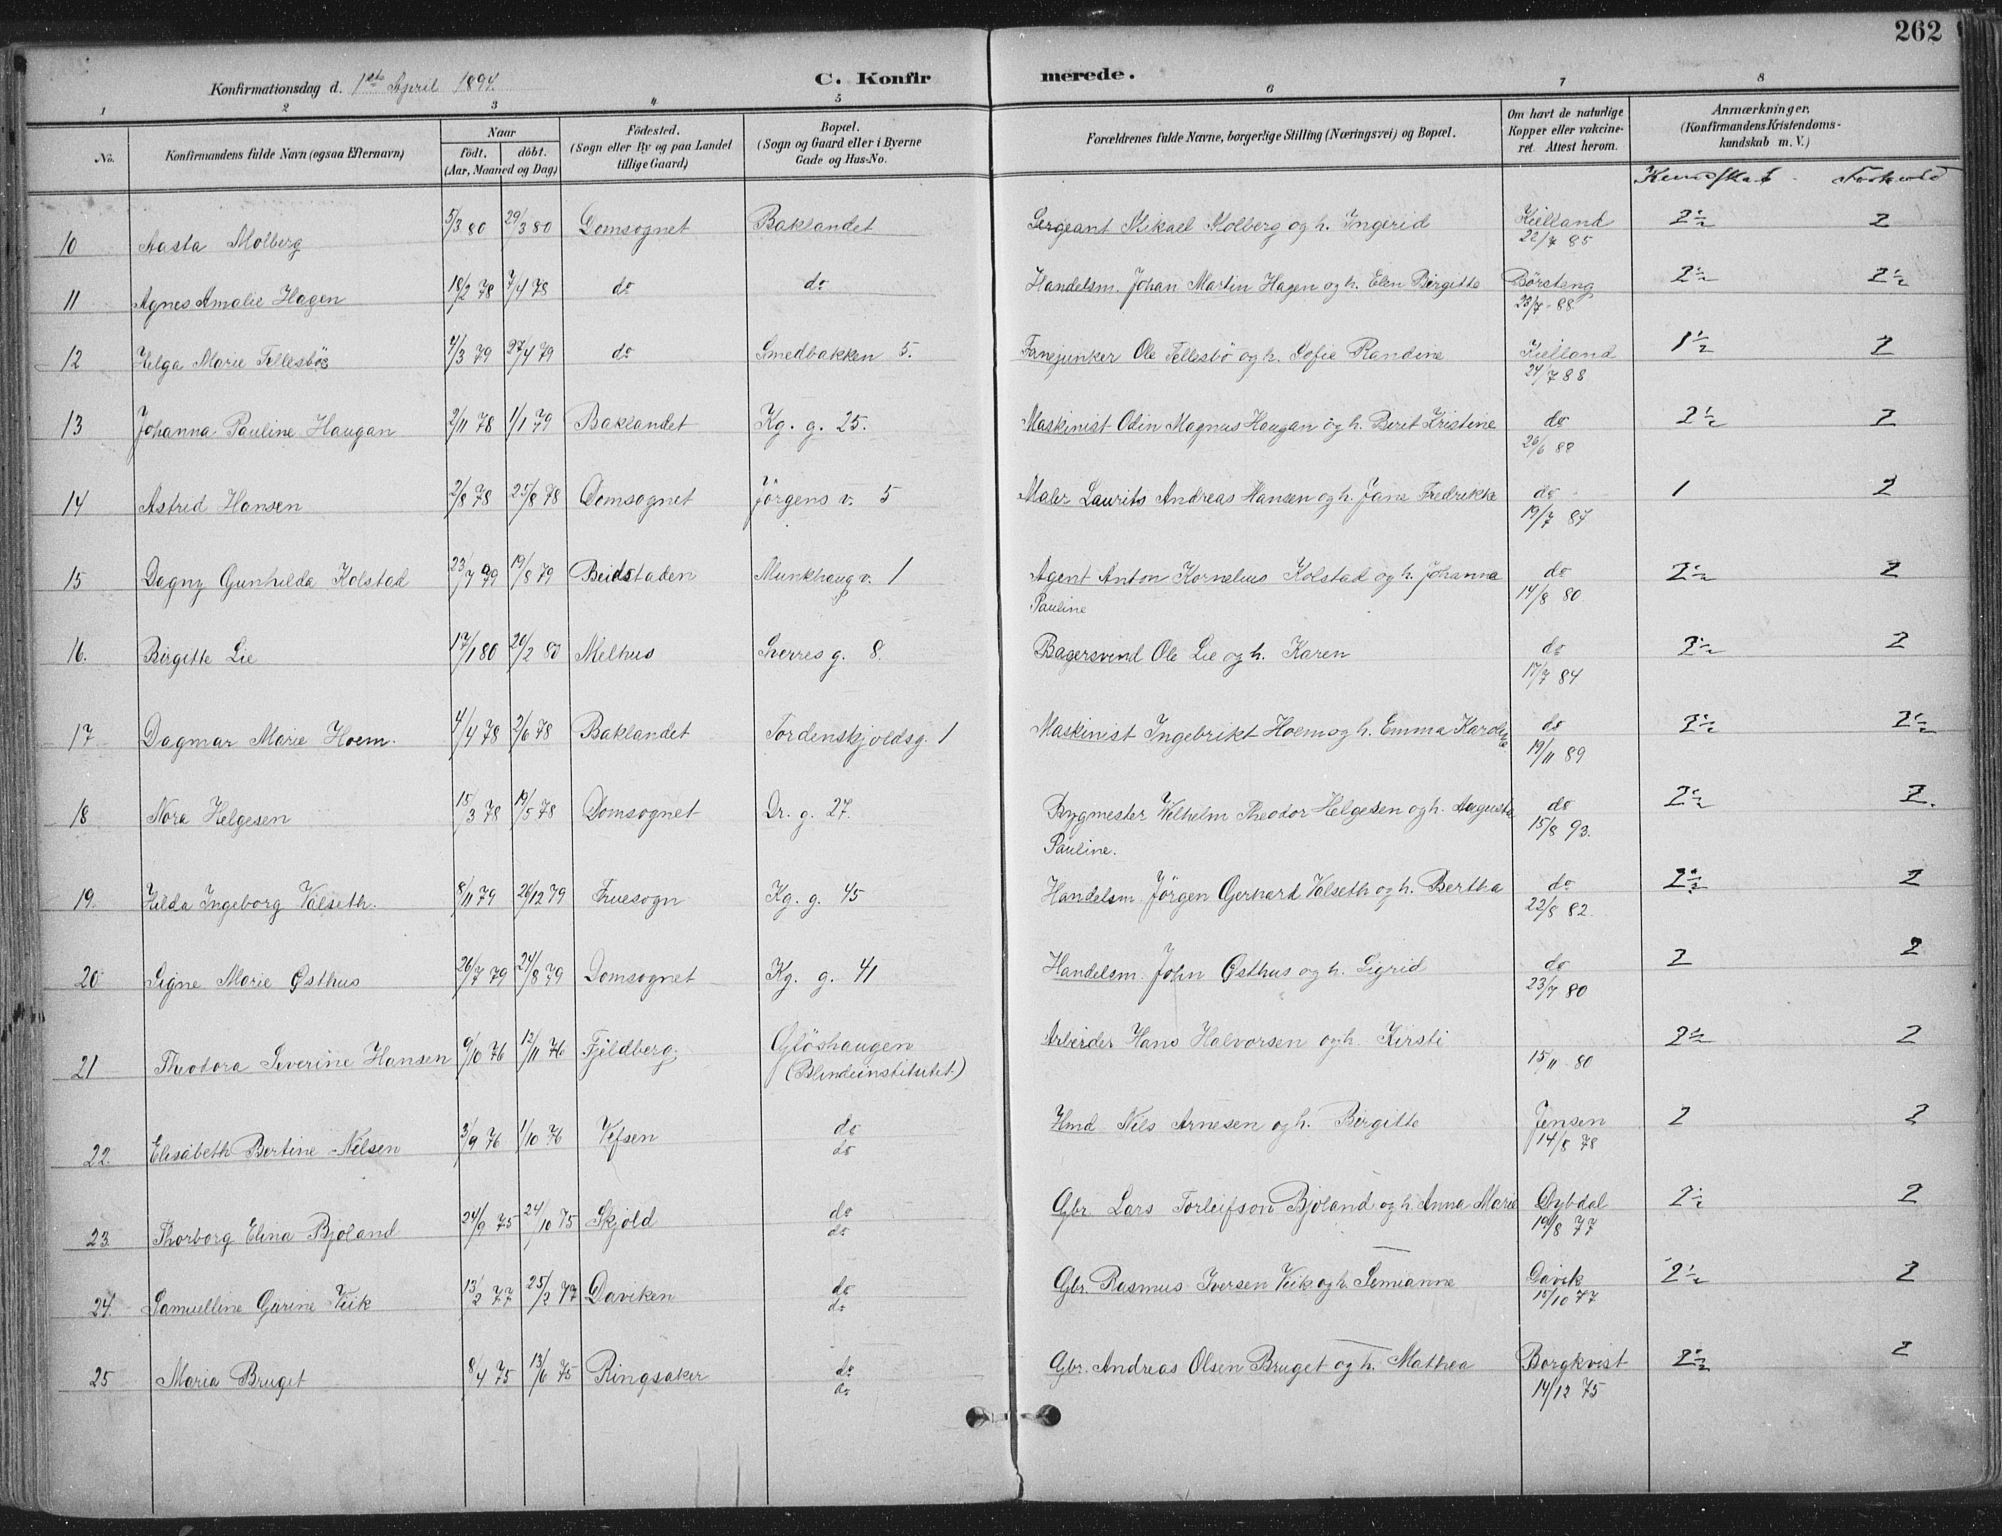 262
Konfirmationsdag d. 1ste April 1894.
C. Konfirmerede.
1 2 3 4 5 6 7 8
No. Konfirmandens fulde Navn (ogsaa Efternavn) Naar født. døbt. (Aar, Maaned og Dag) Fødested. (Sogn eller By og paa Landet tillige Gaard) Bopæl. (Sogn og Gaard eller i Byerne Gade og Hus-No. Forældrenes fulde Navne, borgerlige Stilling (Næringsvei) og Bopæl. Om havt de naturlige Kopper eller vakcineret. Attest herom. Anmærkninger. (Konfirmandens Kristendomskundskab m. V.)
Kundskab Forhold
10 Aasta Molberg 5/3 80 29/3 80 Domsognet Baklandet Sergeant Mikael Molberg og h. Ingerid Kielland 22/7 85 2 1/2 2
11 Agnes Amalie Hagen 18/2 78 7/4 78 do do Handelsm. Johan Martin Hagen og h. Elen Birgitte Børsteng 23/7 - 88 2 1/2 2 1/2
12 Helga Marie Tellesbø 4/3 79 27/4 79 do Smedbakken 5. Fanejunker Ole Tellesbø og h. Sofie Randine Kielland 24/7 88 1 1/2 2
13 Johanna Pauline Haugan 2/11 78 1/1 79 Baklandet Kg. g. 25. Maskinist Odin Magnus Haugan og h. Berit Kristine do 26/6 88 2 1/2 2
14 Astrid Hansen 2/8 78 25/8 78 Domsognet Jörgens v. 5 Maler Laurits Andreas Hansen og h. Jane Fredrikke do 19/7 87 1 2
15 Dagny Gunhilda Kolstad 23/7 79 19/8 79 Beidstaden Munkhaug v. 1 Agent Anton Kornelius Kolstad og h. Johanna Pauline do 14/8 80 2 1/2 2
16. Birgitte Lie 17/1 80 20/2 80 Melhus Sverres g. 8. Bagersvend Ole Lie og h. Karen do 17/7 84 2 1/2 2
17 Dagmar Marie Hoem. 4/4 78 2/6 78 Baklandet Tordenskjoldsg. 1 Maskinist Ingebrikt Hoem og h. Emma Karoline do 19/11 89 2 1/2 2 1/2
18 Nora Helgesen 15/3 78 19/5 78 Domsognet Dr. g. 27. Bygmester Vilhelm Theodor Helgesen og h. Augusta Pauline. do 15/8 93. 2 1/2 2.
19. Hilda Ingeborg Valseth. 8/11 79 26/12 79 Fruesogn Kg. g. 45 Handelsm. Jörgen Gerhard Valseth og h. Bertha do 22/8 82. 2 1/2 2
20 Signe Marie Østhus 26/7 79 24/8 79 Domsognet Kg. g. 41 Handelsm. John Østhus og h. Sigrid do 23/7 80 2 2
21 Theodora Severine Hansen 9/10 76 12/11 76 Fjeldberg Gløshaugen (Blindeinstitutet) Arbeider Hans Halvorsen og h. Kirsti 15/11 - 80 2 1/2 2
22. Elisabeth Bertine Nilsen 3/9 76 1/10 76 Vefsen do do Hmd Nils Arnesen og h. Birgitte Jensen 14/8 78 2 2
23. Thorborg Elina Bjoland 24/9 75 24/10 75 Skjold do do Gbr. Lars Torleifson Bjoland og h. Anna Marie Dybdal 19/8 77 2 1/2 2
24. Samuelline Garine Veik 13/2 77 25/2 77 Daviken do do Gbr. Rasmus Iversen Veik og h. Semianne Davik 15/10 77 2 1/2 2
25 Maria Bruget 8/4 75 13/6 75 Ringsaker do do Gbr. Andreas Olsen Bruget og h. Mathea Borgkvist 14/12 75 2 1/2 2